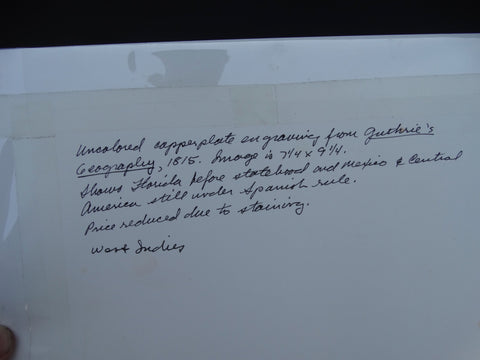 Uncolored copperplate engraving from Guthrie's
Geography, 1815. Image is 7 1/4 x 9 1/4.
Shows Florida before statehood and Mexico & Central
America still under Spanish rule.
Price reduced due to staining.
West Indies